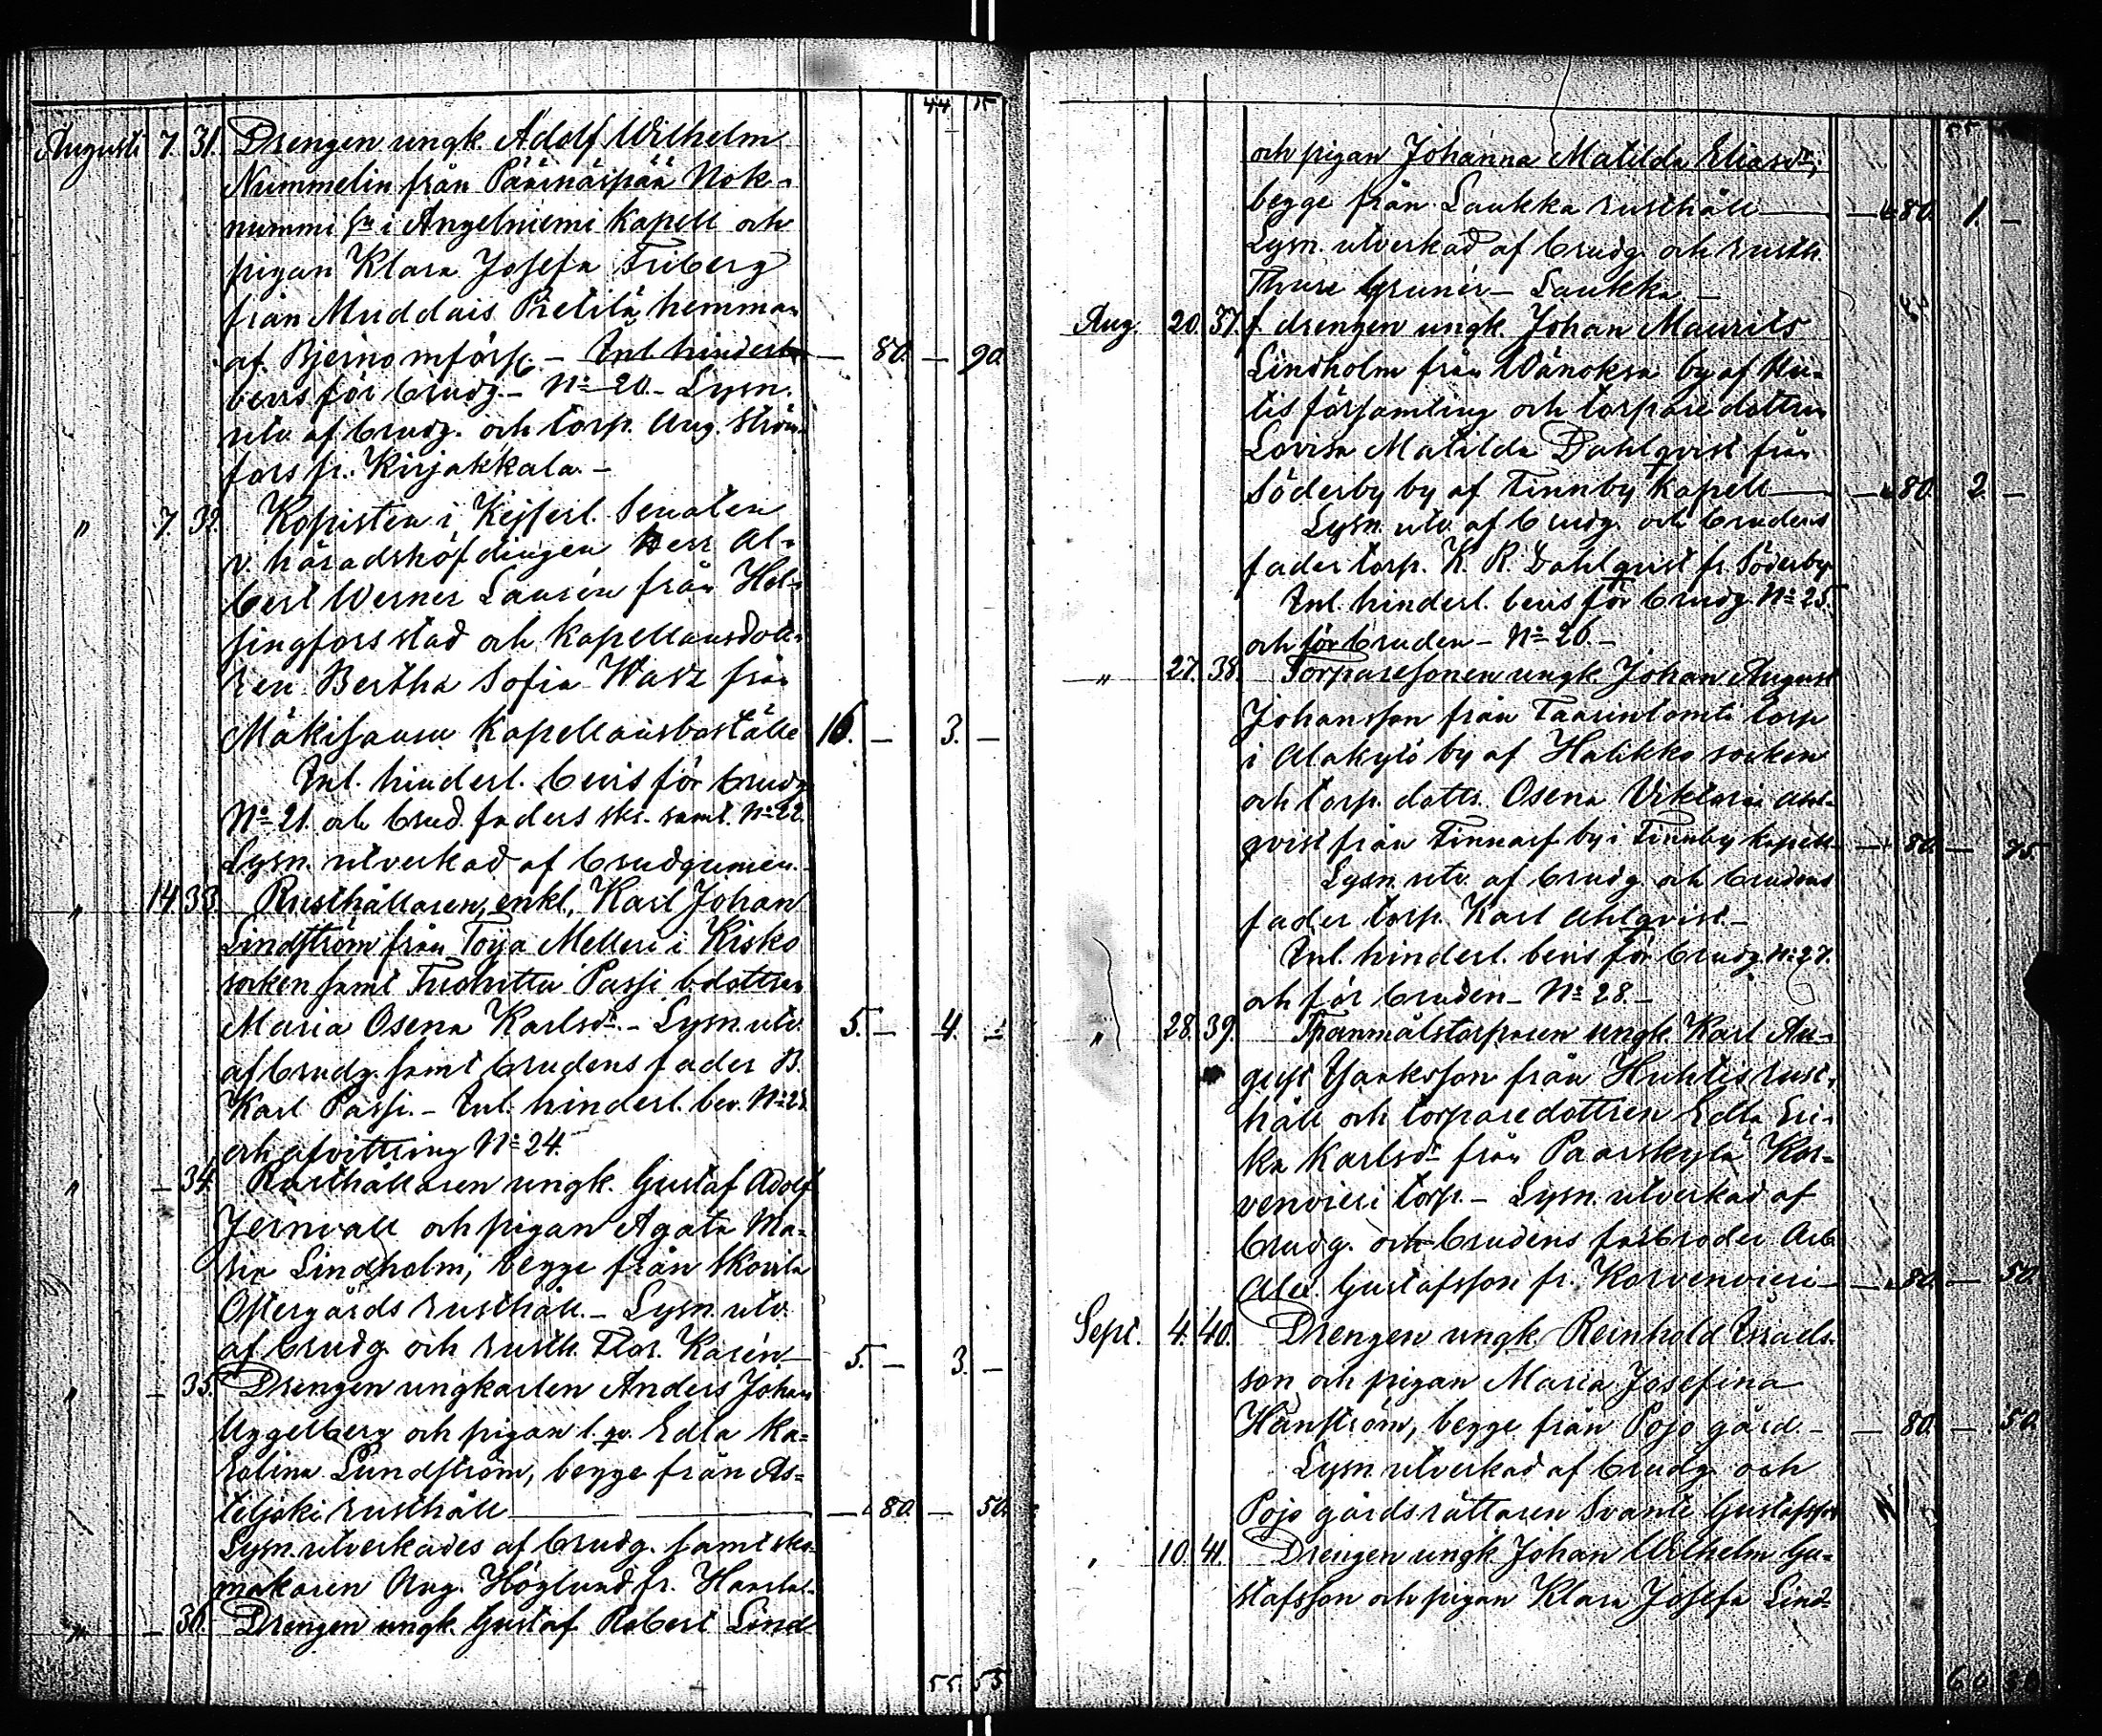 44 15
Augusti 7. 31. Drengen ungk. Adolf Wilhelm
Nummelin från Päärnäspää Nok-
nummi by i Angelniemi Kapell och
pigan Klara Josefa Friberg
från Muddais Pietilä hemman
af Bjerno mförs. – Inl. hinderl. — 80. — 90.
bevis för brudg. – No 20. – Lysn.
utv. af brudg. och torp. Aug. Ström-
fors fr. Kirjakkala. –
" 7. 32. Kopisten i Kejserl. Senaten
v. häradshöfdingen Herr Al-
bert Werner Lausén från Hel-
singfors stad och Kapellansdott-
ren Bertha Sofia Wasz från
Mäkisauru Kapellansboställe 16. — 3. —
Inl. hinderl. bevis för brudg.
No 21. och brud. faders skr. samt. No 22.
Lysn. utverkad af brudgumen. –
" 14. 33. Rusthållaren, enkl. Karl Johan
Lindström från Toija Melleri i Kisko
socken samt Passi bdottren
Maria Osena Karlsdr. – Lysn. utv. 5. — 4. —
af brudg. samt brudens fader B.
Karl Passi. – Inl. hinderl. bev. No 23
och afvittring No 24.
" — 34. Rusthållaren ungk. Gustaf Adolf
Jernvall och pigan Agata Ma-
ria Lindholm, begge från Skoila
Östergårds rusthåll. – Lysn. utv.
af brudg. och rusth. Flor. Karén. — 5. — 3. —
" — 35. Drengen ungkarlen Anders Johan
Uggelberg och pigan l. qv. Edla Ka-
rolina Lundström, begge från As-
teljoki rusthåll — 80. — 50.
Lysn. utverkades af brudg. samt sko-
makaren Aug. Höglund fr.
" — 36. Drengen ungk. Gustaf Robert Lind-
55. 55
och pigan Johanna Matilda Eliasdr,
begge från Laukka rusthåll — 80. 1. —
Lysn. utverkad af brudg. och rusth.
Thure Grunér – Laukka. –
Aug. 20. 37. f. drengen ungk. Johan Maurits
Lindholm från Wänoksa by af Hii-
tis församling och torparedottren
Lovisa Matilda Dahlqvist från
Söderby by af Finnby Kapell — 80. 2. —
Lysn. utv. af brudg. och brudens
fader torp. K. R. Dahlqvist fr. Söderby
Inl. hinderl. bevis för brudg. No 25.
och för bruden – No 26. –
" 27. 38. Torparesonen ungk. Johan August
Johansson från torp
i Alakylö by af Halikko socken
och torp. dottr. Osena Viktoria Ahl-
qvist från Finnarf by i Finnby Kapell — 80. — 75
Lysn. utv. af brudg. och brudens
fader torp. Karl Ahlqvist. –
Inl. hinderl. bevis för brudg. No 27.
och för bruden – No 28. –
" 28. 39. Spanmålstorparen ungk. Karl Au-
gust från Huhtis rust-
håll och torparedottren Edla Eri-
ka Karlsdr från Paarskylä Kor-
venvieri torp. – Lysn. utverkad af
brudg. och brudens farbroder Arb.
Alex. Gustafsson fr. Korvenvieri — 80. — 50.
Sept. 4. 40. Drengen ungk. Reinhold Isaks-
son och pigan Maria Josefina
Hanström, begge från Pojo gård. – — 80. — 50.
Lysn. utverkad af brudg. och
Pojo gårdsrättaren Svante Gustafsson
" 10. 41. Drengen ungk. Johan Wilhelm Gu-
stafsson och pigan Klara Josefa Lind-